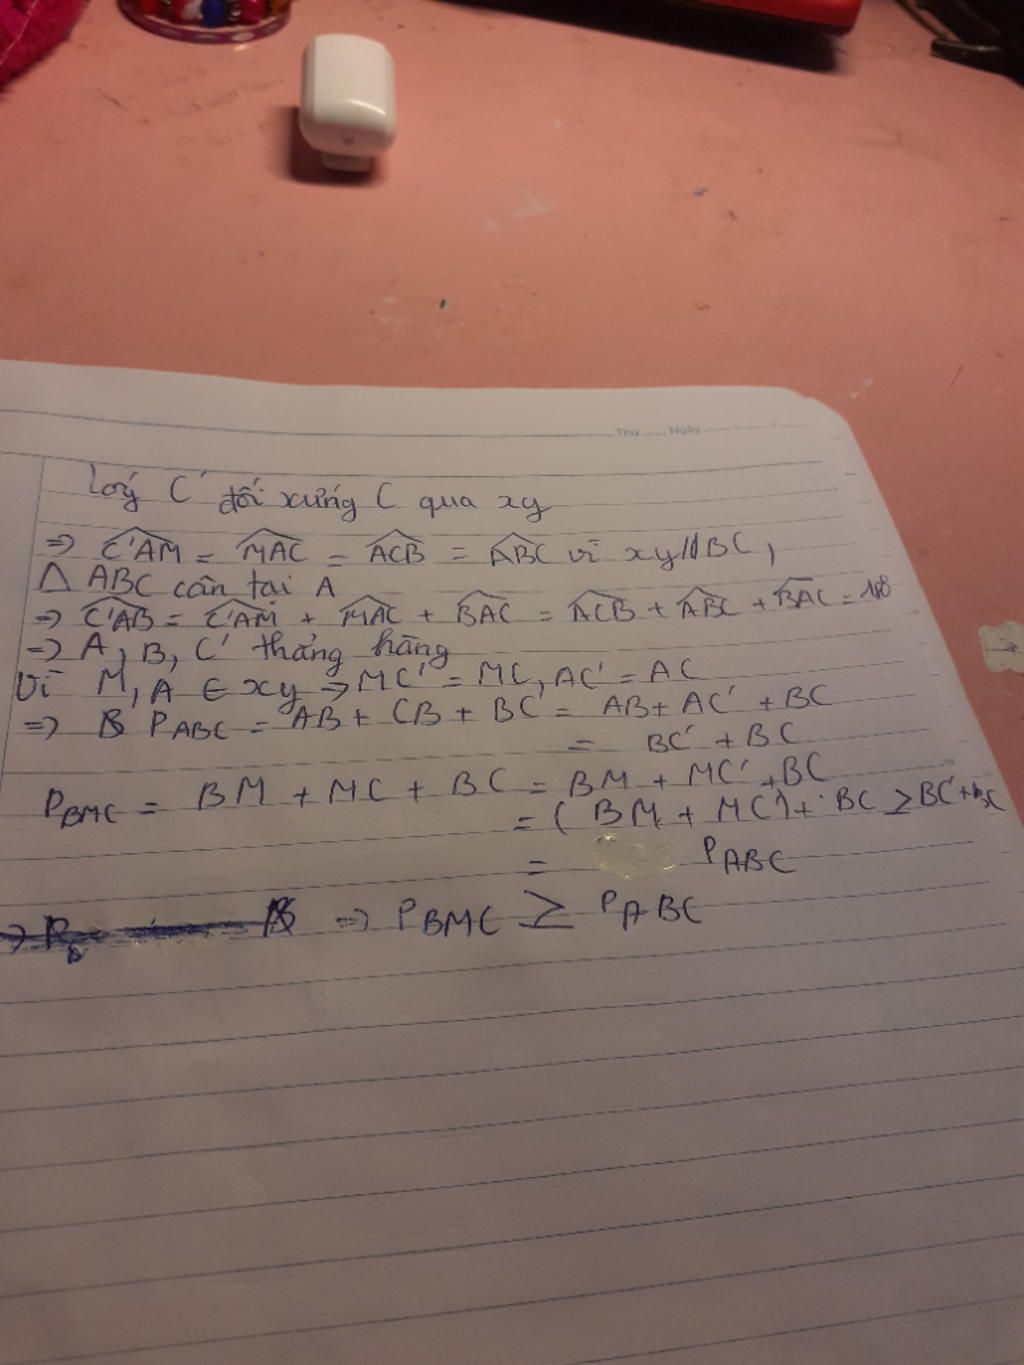 Thứ ...... Ngày ...............
Lấy C' đối xứng C qua xy
⇒ C'AM = MAC = ACB = ABC vì xy // BC,
Δ ABC cân tại A
⇒ C'AB = C'AM + MAC + BAC = ACB + ABC + BAC = 180
⇒ A, B, C' thẳng hàng
Vì M, A ∈ xy ⇒ MC' = MC, AC' = AC
⇒ P_ABC = AB + CB + BC = AB + AC' + BC
= BC' + BC
P_BMC = BM + MC + BC = BM + MC' + BC
= (BM + MC') + BC ≥ BC' + BC
= P_ABC
⇒ P_BMC ≥ P_ABC